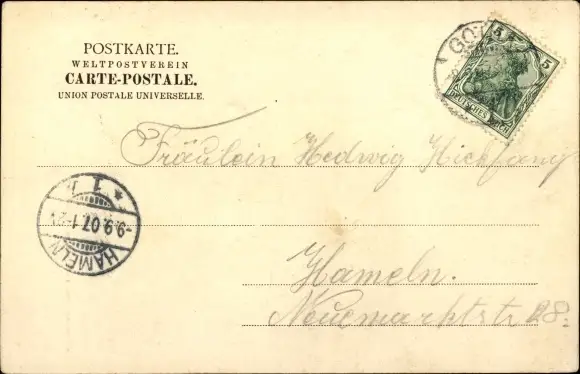 POSTKARTE.
WELTPOSTVEREIN
CARTE-POSTALE.
UNION POSTALE UNIVERSELLE.
5 5
DEUTSCHES REICH
Fräulein Hedwig
Hameln.
Neuemarktstr 28.
HAMELN
-9.9.07.1-2N
* 1